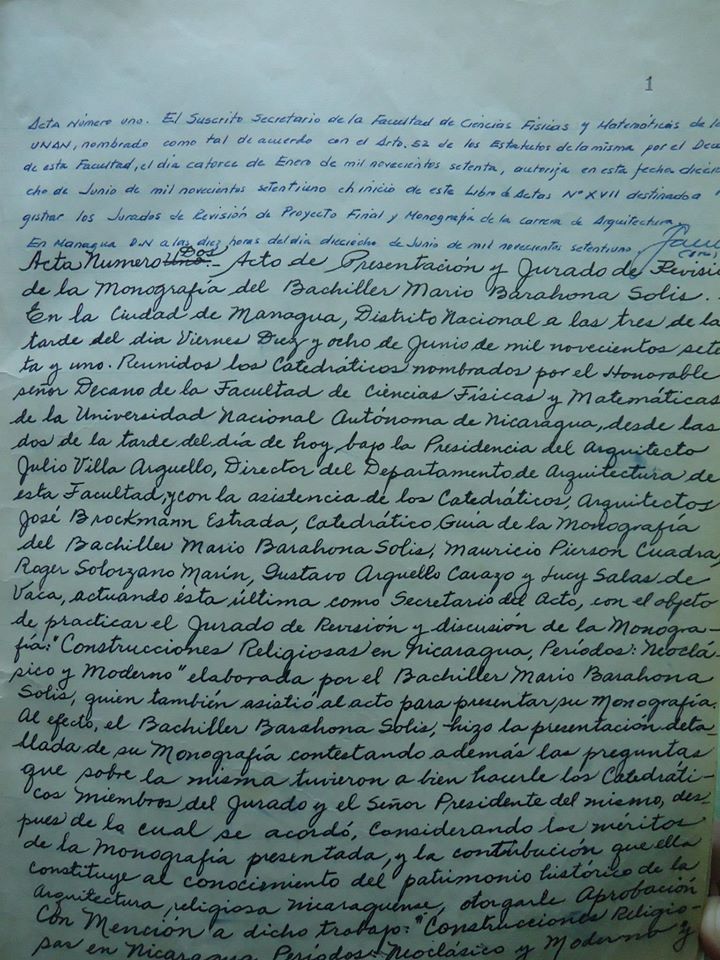 1
Acta Número uno. El Suscrito Secretario de la Facultad de Ciencias Físicas y Matemáticas de la
UNAN, nombrado como tal de acuerdo con el Arto. 52 de los Estatutos de la misma por el Deca
de esta Facultad, el día catorce de Enero de mil novecientos setenta, autoriza en esta fecha diecio
cho de Junio de mil novecientos setentiuno el inicio de este Libro de Actas Nº XVII destinado a
gistrar los Jurados de Revisión de Proyecto Final y Monografía de la carrera de Arquitectura.
En Managua D.N a las diez horas del día dieciocho de Junio de mil novecientos setentiuno
Acta Numero Uno Dos.- Acto de Presentación y Jurado de Revisió
de la Monografía del Bachiller Mario Barahona Solis...
En la Ciudad de Managua, Distrito Nacional a las tres de la
tarde del dia Viernes Diez y ocho de Junio de mil novecientos sete
ta y uno. Reunidos los Catedráticos nombrados por el Honorable
señor Decano de la Facultad de Ciencias Físicas y Matemáticas
de la Universidad Nacional Autónoma de Nicaragua, desde las
dos de la tarde del día de hoy, bajo la Presidencia del Arquitecto
Julio Villa Arguello, Director del Departamento de Arquitectura de
esta Facultad, y con la asistencia de los Catedráticos, Arquitectos
José Brockmann Estrada, Catedrático Guía de la Monografía
del Bachiller Mario Barahona Solis, Mauricio Pierson Cuadra,
Roger Solorzano Marín, Gustavo Arguello Carazo y Lucy Salas de
Vaca, actuando ésta última como Secretario del Acto, con el objeto
de practicar el Jurado de Revisión y discusión de la Monogra-
fía: "Construcciones Religiosas en Nicaragua, Períodos: Neoclá-
sico y Moderno" elaborada por el Bachiller Mario Barahona
Solis, quien también asistió al acto para presentar su Monografía.
Al efecto, el Bachiller Barahona Solis, hizo la presentación deta-
llada de su Monografía contestando además las preguntas
que sobre la misma tuvieron a bien hacerle los Catedráti-
cos miembros del Jurado y el Señor Presidente del mismo, des-
pues de la cual se acordó, considerando los méritos
de la Monografía presentada, y la contribución que ella
constituye al conocimiento del patrimonio histórico de la
Arquitectura religiosa nicaraguense, otorgarle Aprobación
Con Mención a dicho trabajo: "Construcciones Religio-
sas en Nicaragua Períodos: Neoclásico y Moderno y